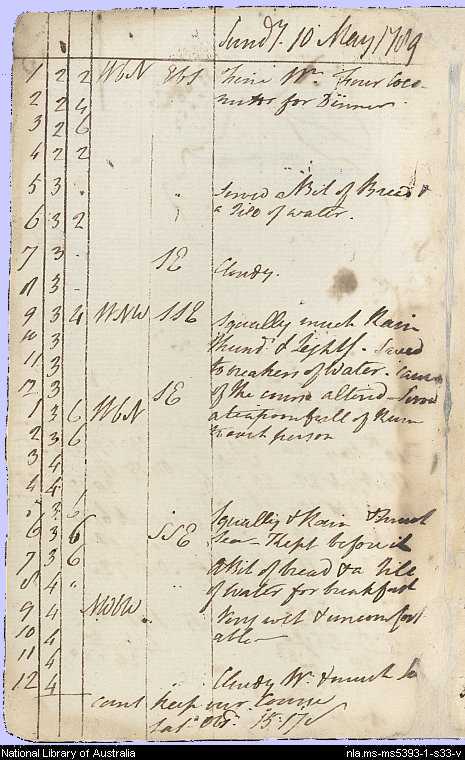 Sund.y 10 May 1789
1 2 2 WbN EbS Fine Wr. Four Coco-
2 2 4 nutts for Dinner
3 2 6
4 2 2
5 3 . " Served a Bit of Bread &
6 3 2 " a Jill of water.
7 3 - SE
8 3 - Cloudy.
9 3 4 WNW SSE Squally much Rain
10 3 Thund.r & Lights. Saved
11 3 breakers of water.
12 3 SE of the course altered - Served
1 3 6 WbN a teaspoonfull of Rum
2 3 6 to each person
3 4
4 4
5 3 6 Squally & Rain & much
6 3 6 SSE Sea - Kept before it
7 3 6 A Bit of bread & a Jill
8 4 " of water for breakfast
9 4 NWbW " Very wet & uncomfort
10 4 able -
11 4
12 4 Cloudy Wr. & much Sea
cant keep our Course
Lat. Obs. 15:17 S
National Library of Australia
nla.ms-ms5393-1-s33-v